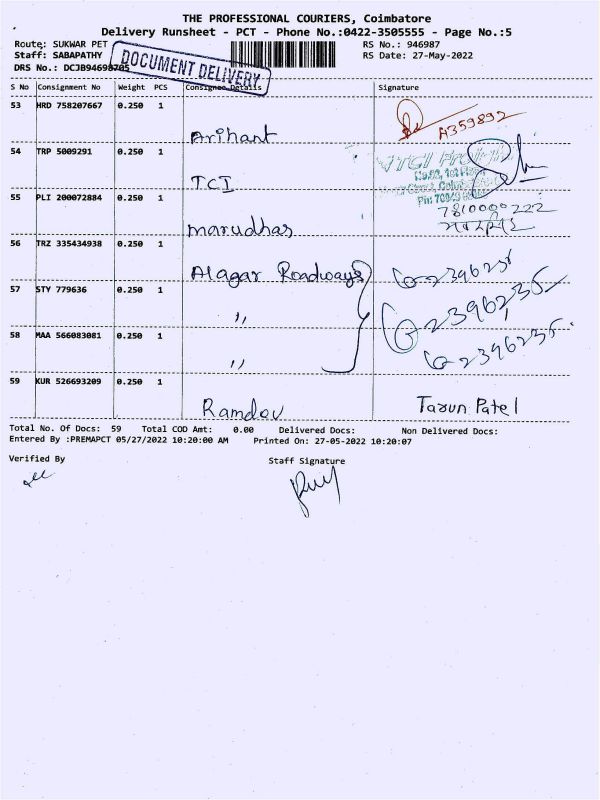 THE PROFESSIONAL COURIERS, Coimbatore
Delivery Runsheet - PCT - Phone No.:0422-3505555 - Page No.:5
Route: SUKWAR PET RS No.: 946987
Staff: SABAPATHY RS Date: 27-May-2022
DRS No.: DCJB94698705
DOCUMENT DELIVERY
S No Consignment No Weight PCS Consignee Details Signature
53 HRD 758207667 0.250 1 Arihant A359892
54 TRP 5009291 0.250 1 TCI
55 PLI 200072884 0.250 1 Marudhar 7810000222
56 TRZ 335434938 0.250 1 Alagar Roadways
57 STY 779636 0.250 1 ,,
58 MAA 566083081 0.250 1 ,,
59 KUR 526693209 0.250 1 Ramdev Tarun Patel
Total No. Of Docs: 59 Total COD Amt: 0.00 Delivered Docs: Non Delivered Docs:
Entered By :PREMAPCT 05/27/2022 10:20:00 AM Printed On: 27-05-2022 10:20:07
Verified By Staff Signature